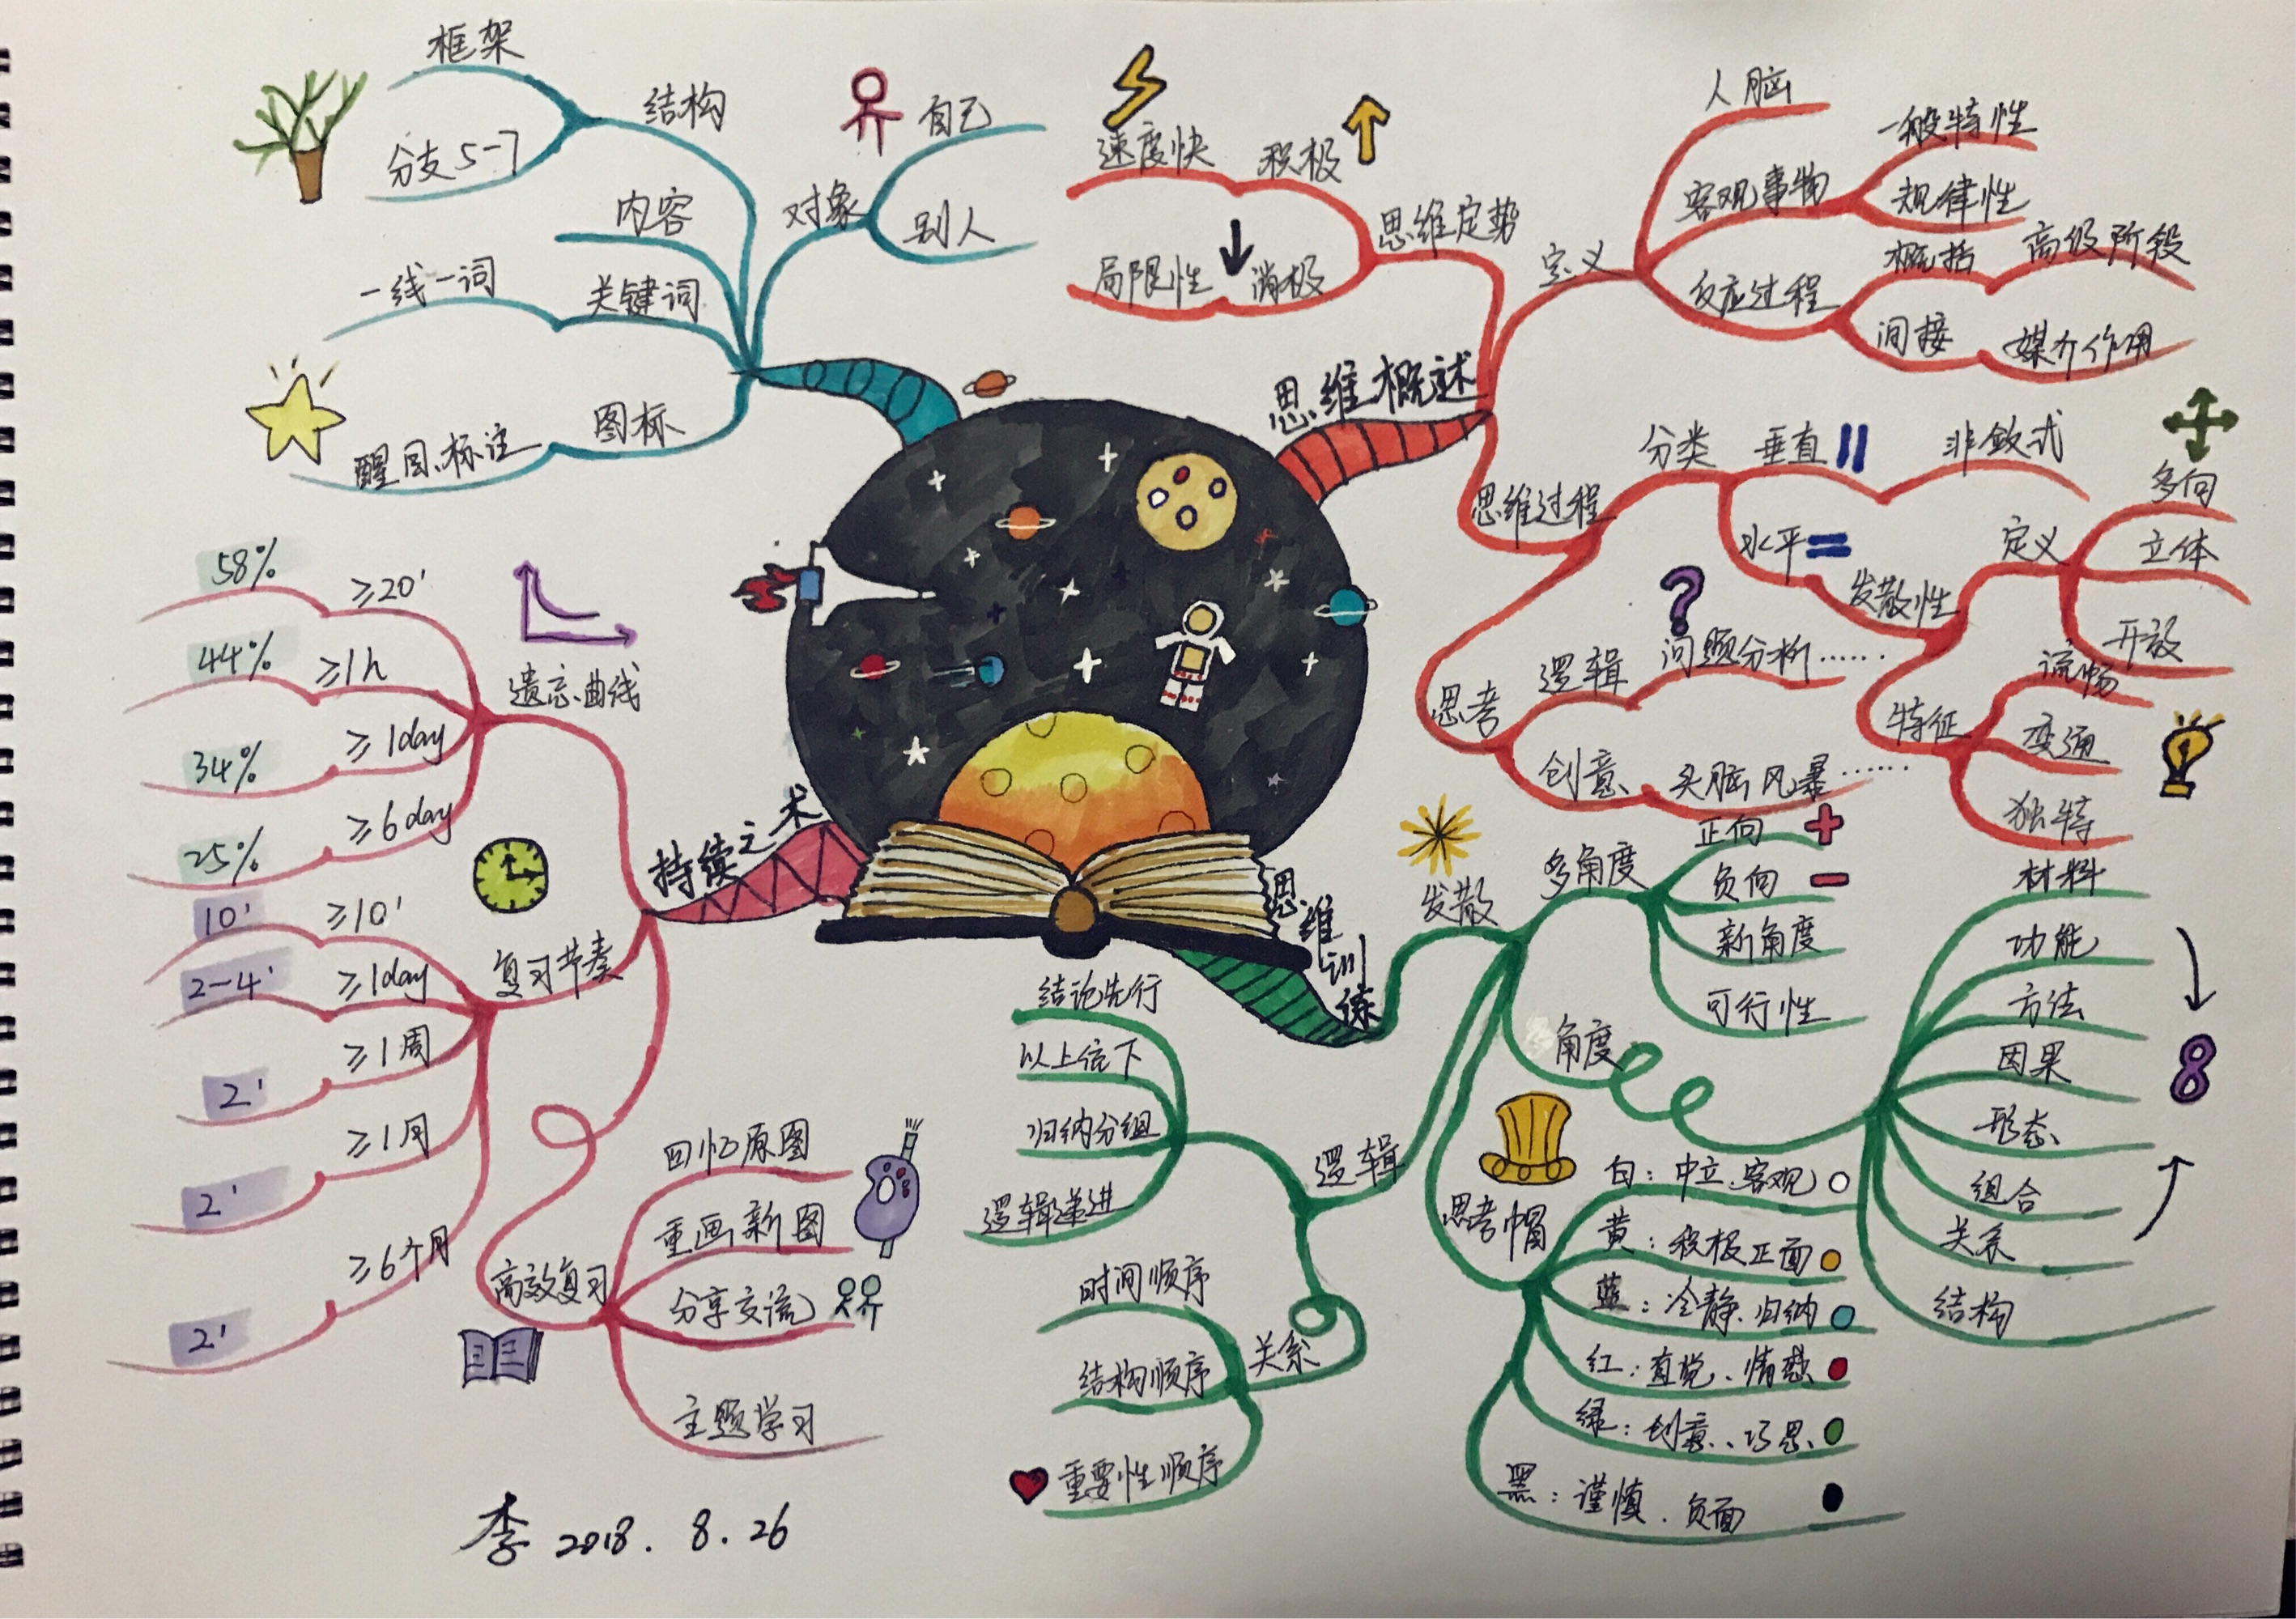 思维概述
定义
人脑
客观事物
一般特性
规律性
反应过程
概括
高级阶段
间接
媒介作用
思维定势
积极
速度快
消极
局限性
思维过程
分类
垂直
非敛式
水平
发散性
定义
多向
立体
开放
特征
流畅
变通
独特
思考
逻辑
问题分析……
创意
头脑风暴……
思维训练
发散
多角度
正向
负向
新角度
可行性
角度
材料
功能
方法
因果
形态
组合
关系
结构
8
思考帽
白：中立、客观
黄：积极正面
蓝：冷静、归纳
红：直觉、情感
绿：创意、巧思
黑：谨慎、负面
逻辑
结论先行
以上统下
归纳分组
逻辑递进
关系
时间顺序
结构顺序
重要性顺序
持续之术
遗忘曲线
≥20' 58%
≥1h 44%
≥1day 34%
≥6day 25%
复习节奏
≥10' 10'
≥1day 2-4'
≥1周 2'
≥1月 2'
≥6个月 2'
高效复习
回忆原图
重画新图
分享交流
主题学习
结构
框架
分支5-7
内容
关键词
一线一词
图标
醒目、标注
对象
自己
别人
李 2018. 8. 26